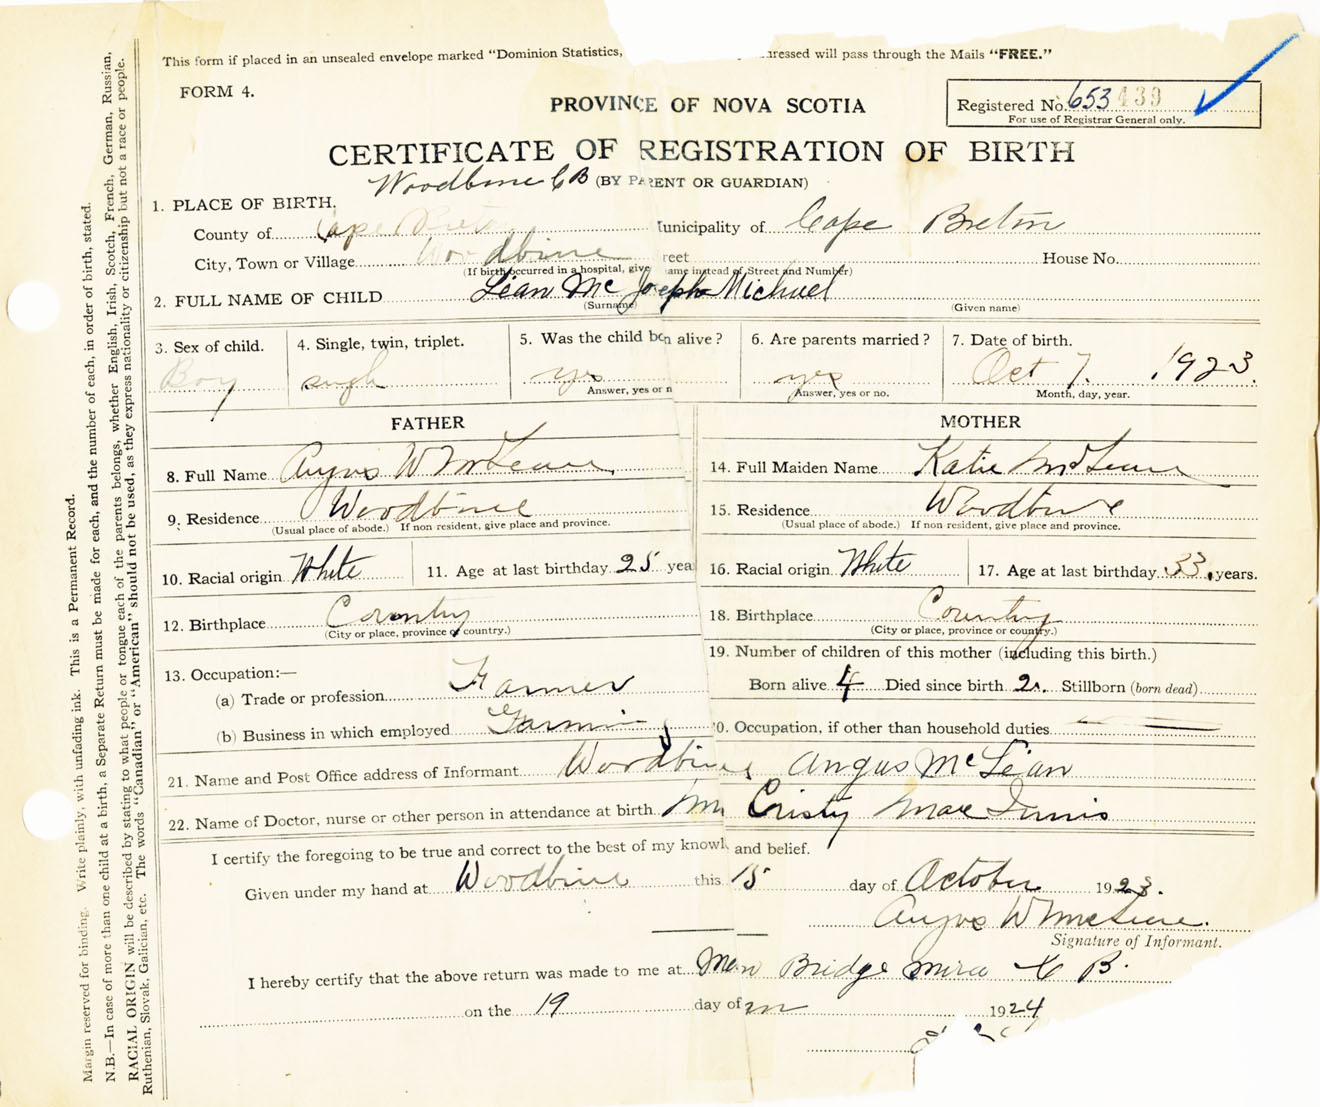 This form if placed in an unsealed envelope marked "Dominion Statistics, ressed will pass through the Mails "FREE."
FORM 4.
PROVINCE OF NOVA SCOTIA
Registered No. 653 439
For use of Registrar General only.
CERTIFICATE OF REGISTRATION OF BIRTH
Woodbine C B (BY PARENT OR GUARDIAN)
1. PLACE OF BIRTH.
County of Cape Breton Municipality of Cape Breton
City, Town or Village Woodbine reet House No.
(If birth occurred in a hospital, give ame instead of Street and Number)
2. FULL NAME OF CHILD Lean Mc Joseph Michael
(Surname) (Given name)
3. Sex of child. 4. Single, twin, triplet. 5. Was the child born alive? 6. Are parents married? 7. Date of birth.
Boy yes yes Oct 7. 1923.
Answer, yes or n Answer, yes or no. Month, day, year.
FATHER MOTHER
8. Full Name Angus W McLean 14. Full Maiden Name Katie McLean
9. Residence Woodbine 15. Residence Woodbine
(Usual place of abode.) If non resident, give place and province. (Usual place of abode.) If non resident, give place and province.
10. Racial origin White 11. Age at last birthday 25 yea 16. Racial origin White 17. Age at last birthday 33 years.
12. Birthplace Country 18. Birthplace Country
(City or place, province or country.) (City or place, province or country.)
13. Occupation:— 19. Number of children of this mother (including this birth.)
(a) Trade or profession Farmer Born alive 4 Died since birth 2. Stillborn (born dead)
(b) Business in which employed Farmin 0. Occupation, if other than household duties
21. Name and Post Office address of Informant Woodbine Angus McLean
22. Name of Doctor, nurse or other person in attendance at birth Cristy Mac Innis
I certify the foregoing to be true and correct to the best of my knowl and belief.
Given under my hand at Woodbine this 15 day of October 1923.
Angus W McLean.
Signature of Informant.
I hereby certify that the above return was made to me at Bridge Mira C B.
on the 19 day of 1924
Margin reserved for binding. Write plainly, with unfading ink. This is a Permanent Record.
N.B.—In case of more than one child at a birth, a Separate Return must be made for each, and the number of each, in order of birth, stated.
RACIAL ORIGIN will be described by stating to what people or tongue each of the parents belongs, whether English, Irish, Scotch, French, German, Russian,
Ruthenian, Slovak, Galician, etc. The words "Canadian" or "American" should not be used, as they express nationality or citizenship but not a race or people.